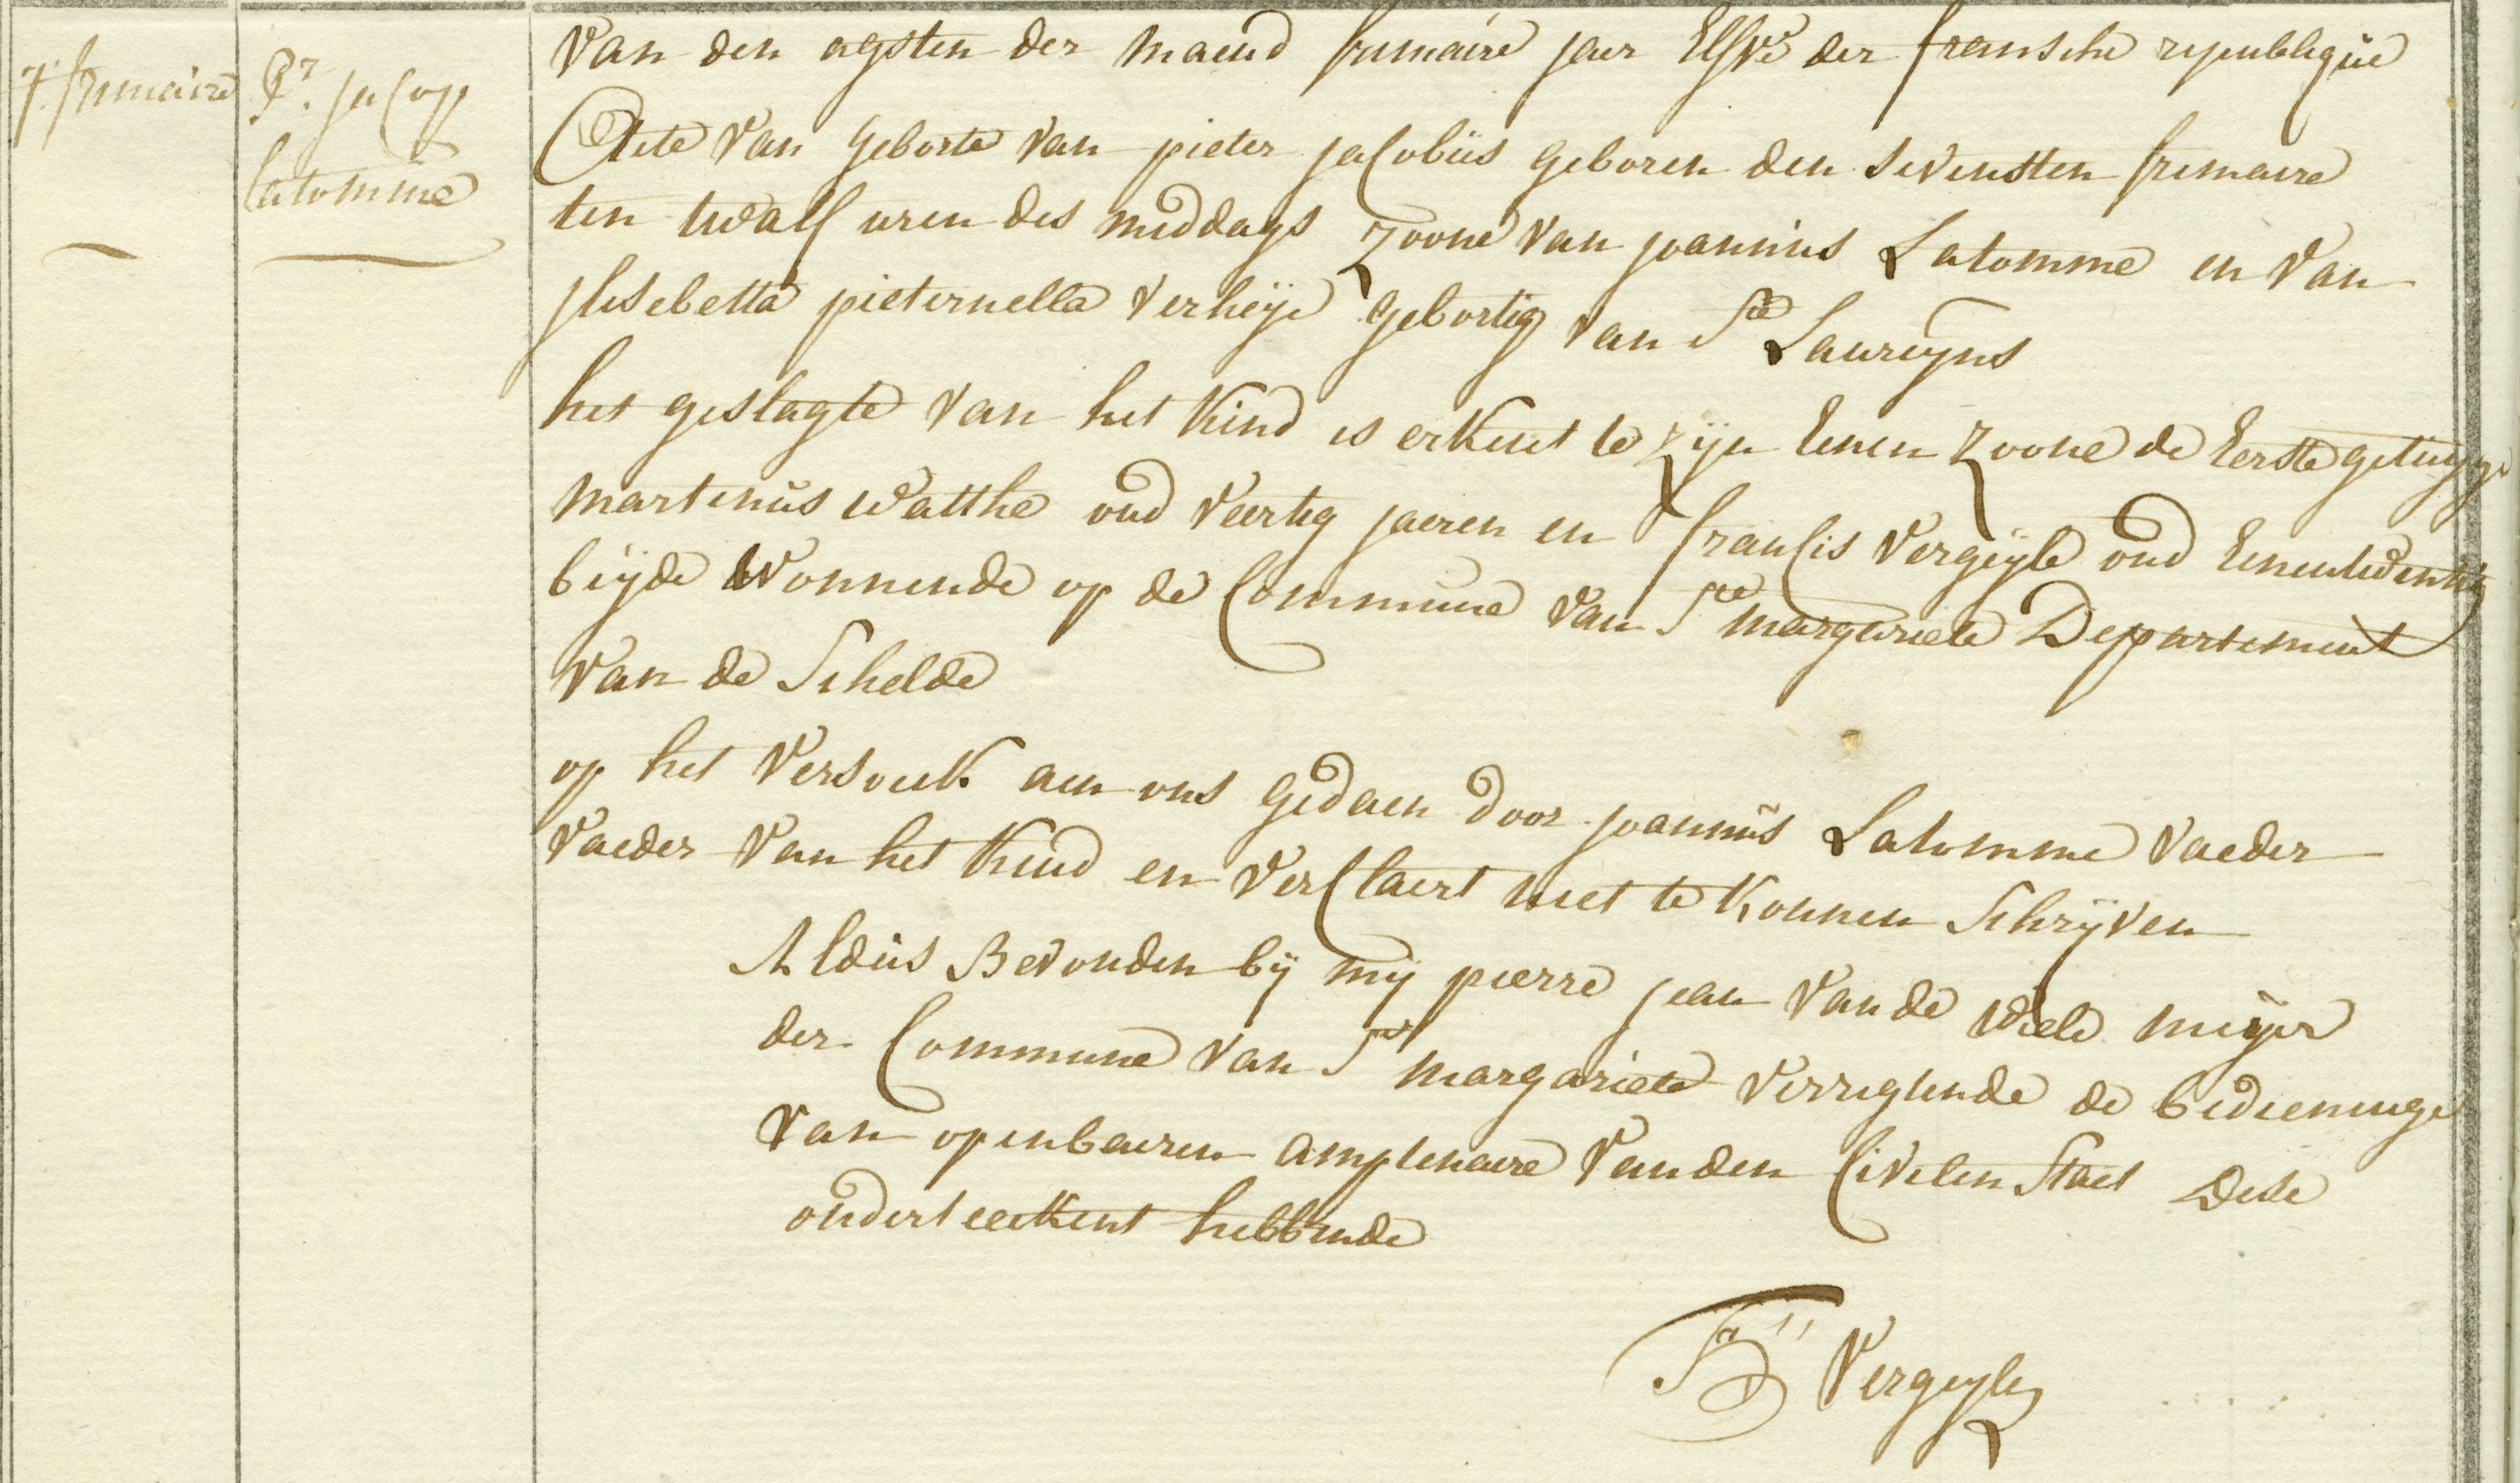 7 frimaire
Pr. jacop
latomme
Van den agsten der maend frimaire jaer Elfve der fransche republique
Acte van geborte van pieter jacobus geboren den sevensten frimaire
ten twalf uren des middags zoone van joannius Latomme en van
jlisebetta pieternella verheije gebortig van Ste Laureyns
het geslagte van het kind is erkent te zijn eenen zoone de Eerste getuyge
martinus watthe oud veertig jaeren en francis vergeyle oud eenentwentig
beyde wonnende op de Commune van Ste margariete Departement
van de Schelde
op het versouk aen ons gedaen door joannus Latomme vaeder
vaeder van het kind en verclaert niet te konnen schryven
Aldus Bevonden by my pierre jean van de wiele meyer
der Commune van Ste margariete verrigtende de bedieninge
van openbaeren amptenaere van den Civilen Staet Dese
onderteekent hebbende
Vergeyle